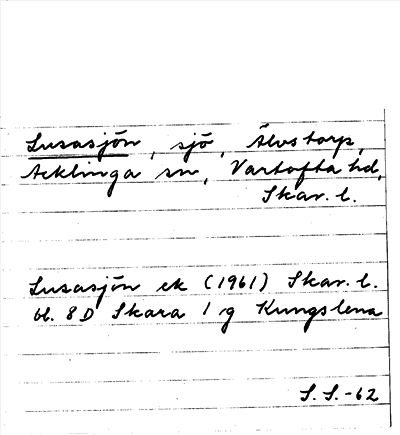 Lusasjön, sjö, Älvstorp,
Acklinga sn, Vartofta hd,
Skar. l.
Lusasjön ek (1961) Skar. l.
bl. 8D Skara 1 g Kungslena
S. S. -62